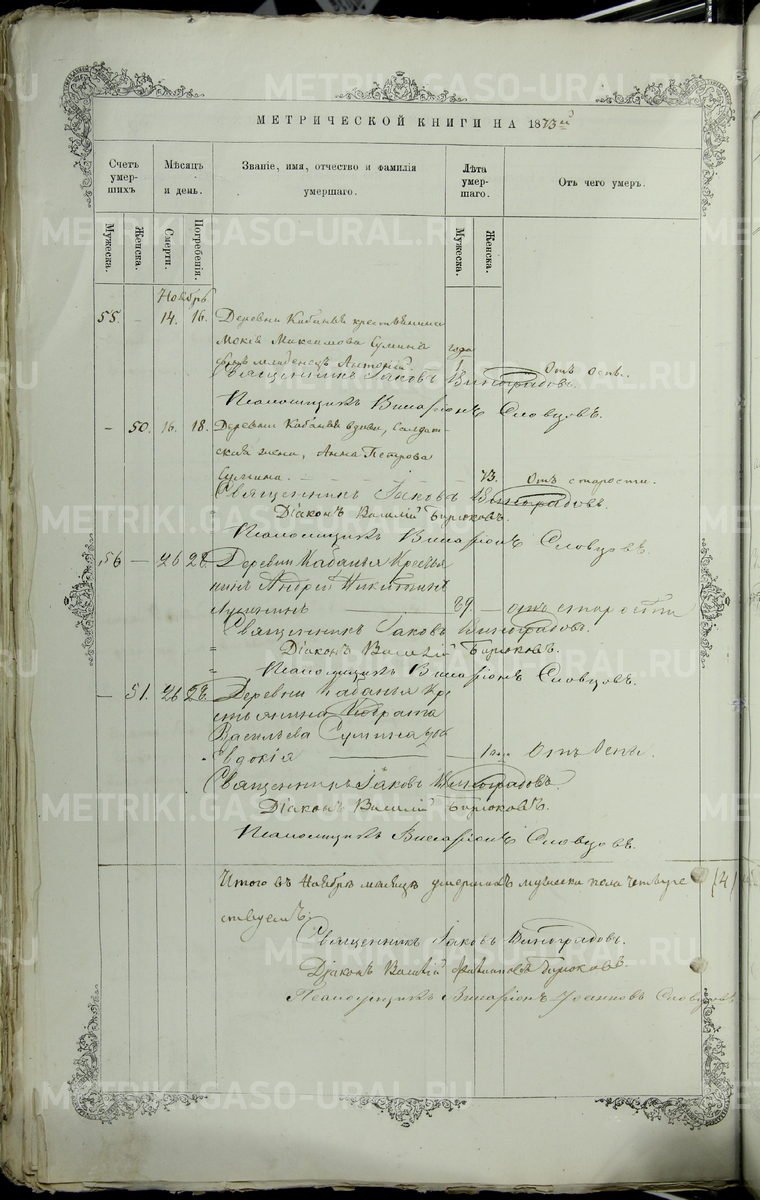 МЕТРИЧЕСКОЙ КНИГИ НА 1873й
Счетъ умер- шихъ
Мѣсяцъ и день.
Званіе, имя, отчество и фамилія умершаго.
Лѣта умер- шаго.
Отъ чего умеръ.
Мужеска.
Женска.
Смерти.
Погребенія.
Мужеска.
Женска.
Ноябрь
55. – 14. 16. Деревни Кабаньи крестьянина
Мокія Максимова Сумина года
сынъ младенецъ Антоній. 1 Отъ оспы.
Священникъ Іаковъ Виноградовъ.
Псаломщикъ Виссаріонъ Словцовъ.
– 50. 16. 18. Деревни Кабаньи вдова, солдат-
ская жена, Анна Петрова
Сумина. 73. Отъ старости.
Священникъ Іаковъ Виноградовъ.
Діаконъ Василій Бирюковъ.
Псаломщикъ Виссаріонъ Словцовъ.
56 – 26 28. Деревни Кабанья Кресья
нинъ Андрей Никитинъ
89. – отъ старости
Священникъ Іаковъ Виноградовъ.
Діаконъ Василій Бирюковъ.
Псаломщикъ Виссаріонъ Словцовъ.
– 51. 26 28. Деревни Кабанья Кре
стьянина
Васильева Сумина дочь
Евдокія 1 года Отъ Оспы.
Священникъ Іаковъ Виноградовъ
Діаконъ Василій Бирюковъ.
Псаломщикъ Виссаріонъ Словцовъ.
Итого въ Ноябрѣ мѣсяцѣ умершихъ мужеска пола четыре (4)
Священникъ Іаковъ Виноградовъ.
Діаконъ Василій Бирюковъ.
Псаломщикъ Виссаріонъ Іоанновъ Словцовъ
METRIKI.GASO-URAL.RU